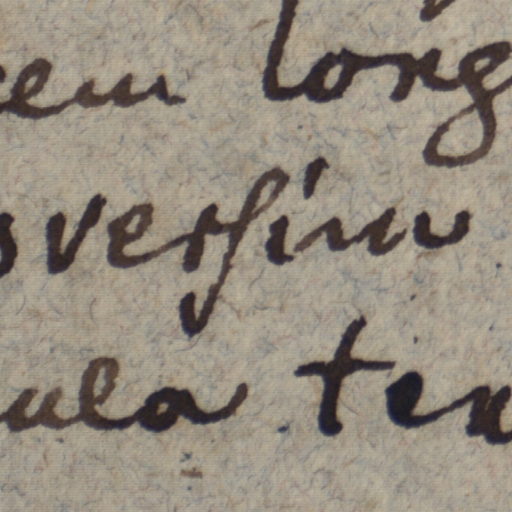 cem long
sversim
ula ten